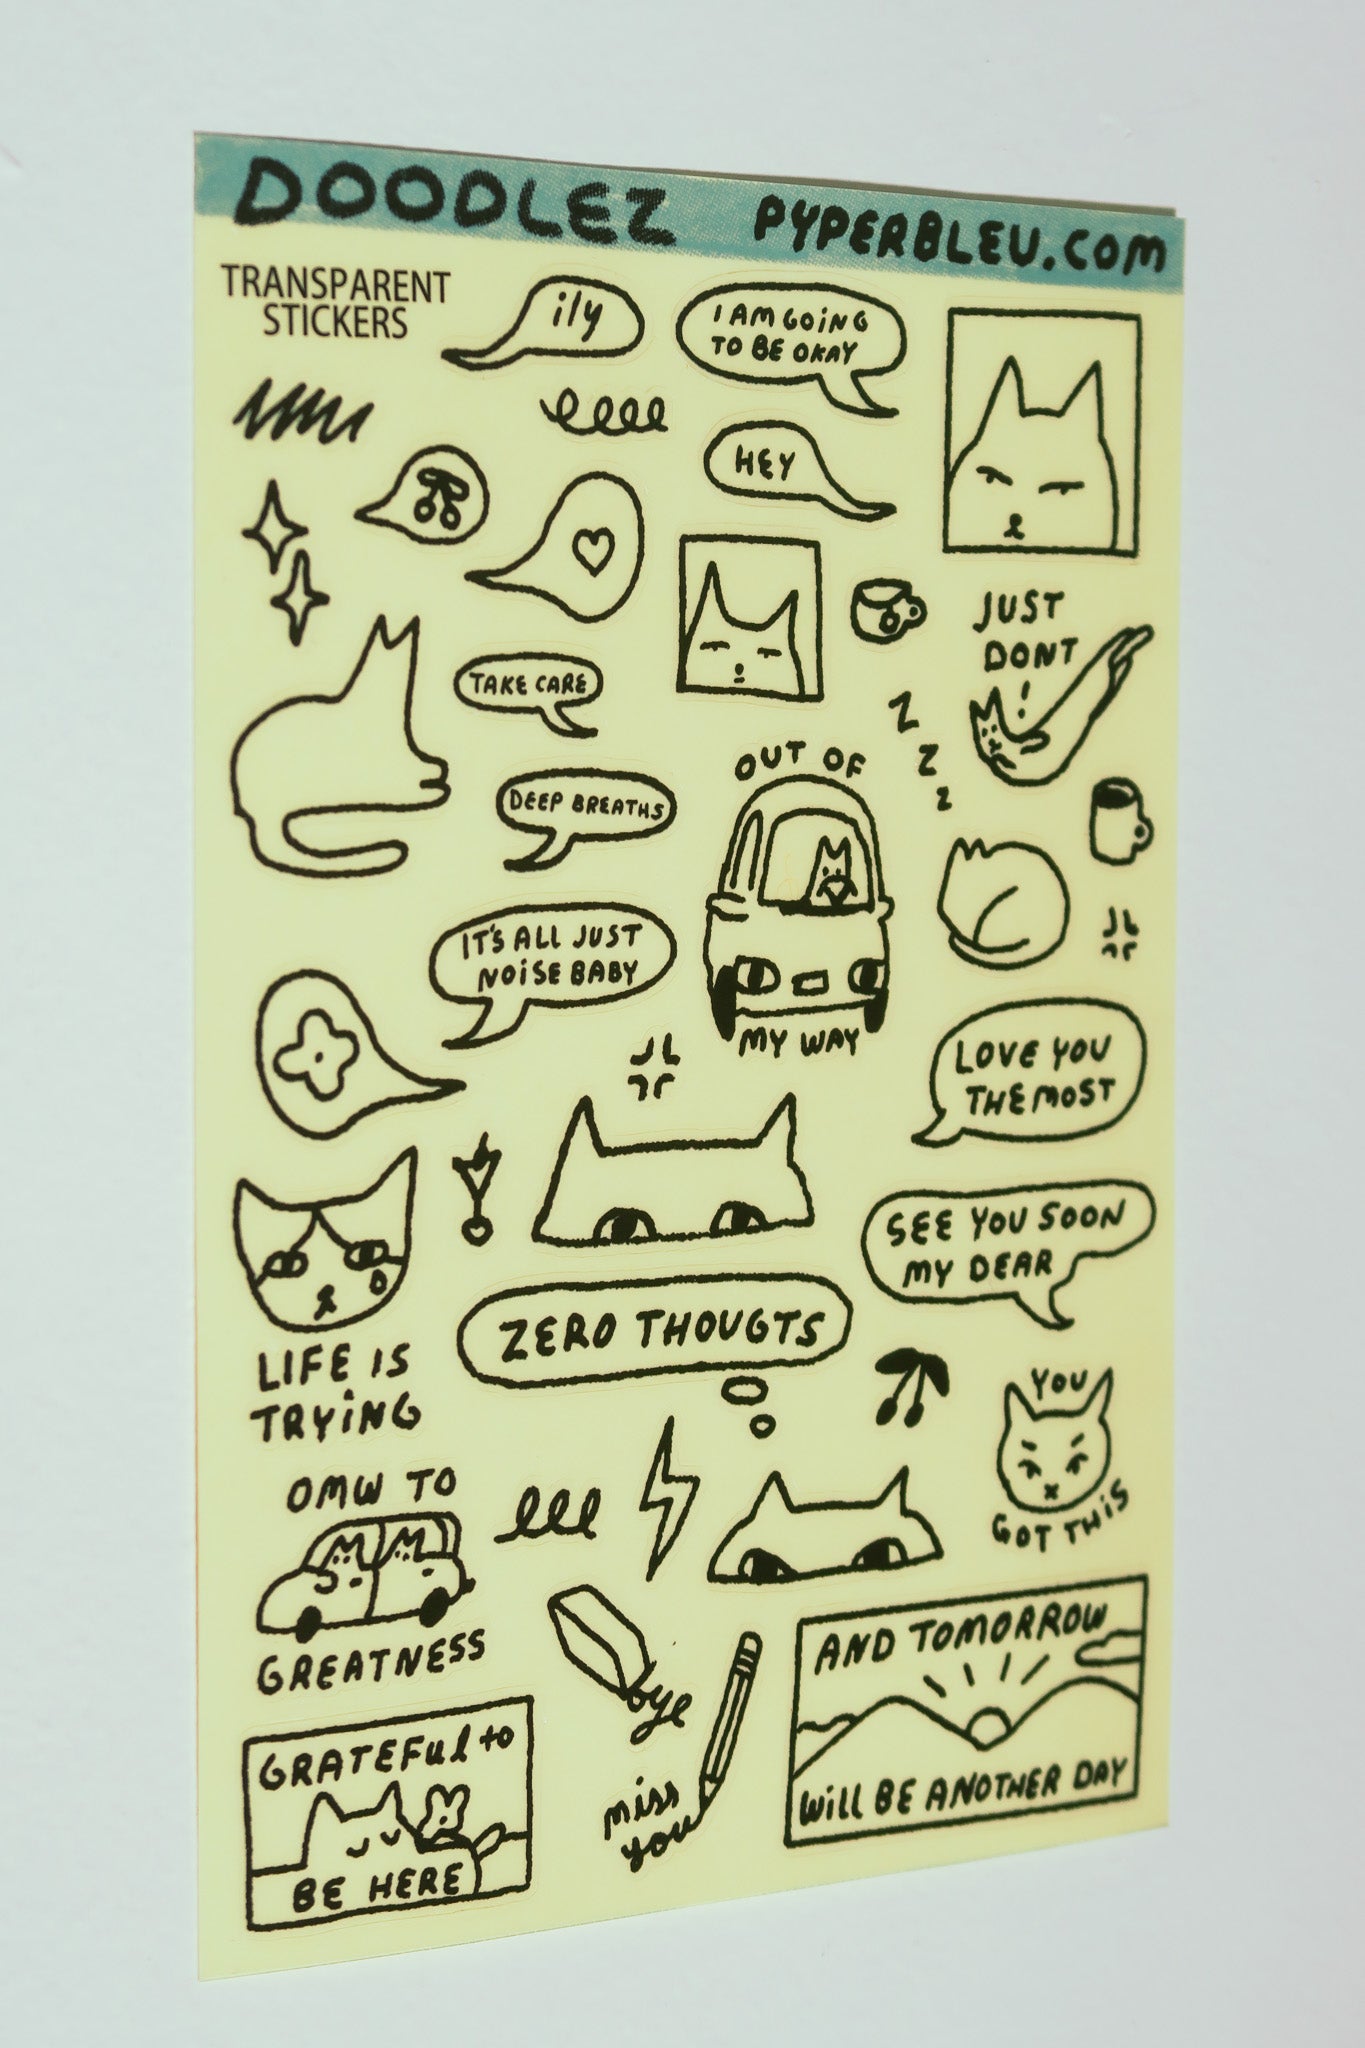 DOODLEZ PYPERBLEU.COM
TRANSPARENT
STICKERS
ily
I AM GOiNG
TO BE OKAY
HEY
JUST
DONT
!
TAKE CARE
Z
Z
Z
OUT OF
MY WAY
DEEP BREATHS
IT'S ALL JUST
NOiSE BABY
LOVE YOU
THE MOST
SEE YOU SOON
MY DEAR
ZERO THOUGTS
LIFE IS
TRYiNG
YOU
GOT THiS
OMW TO
GREATNESS
bye
miss
you
AND TOMORROW
WiLL BE ANOTHER DAY
GRATEFUL to
BE HERE